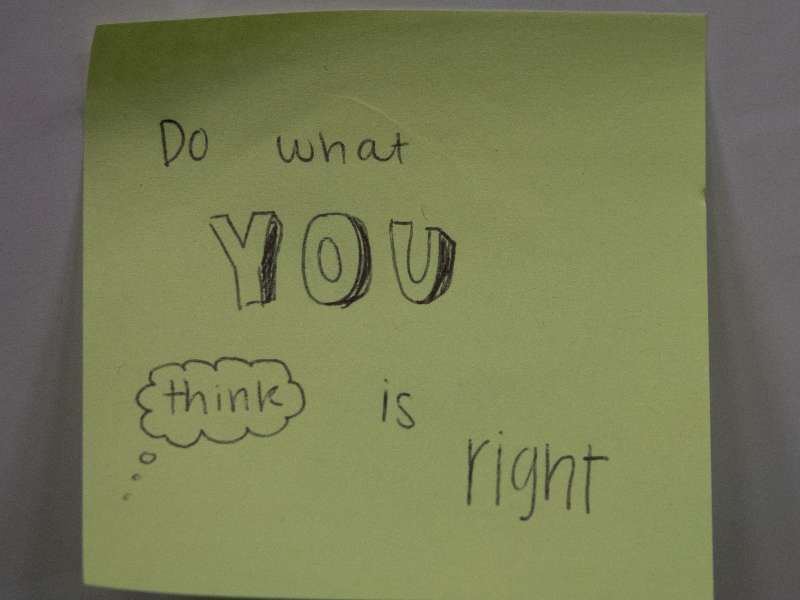 Do what
YOU
think is
right